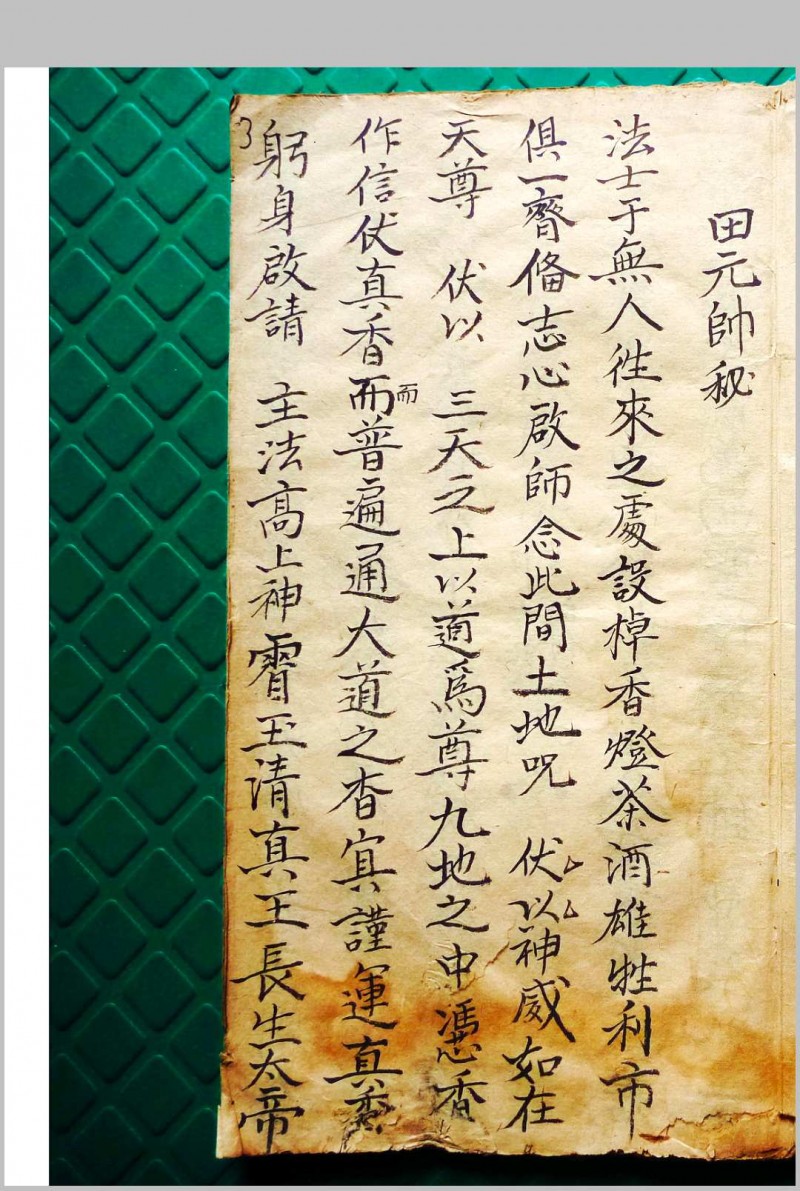 田元帥秘
法士于無人徃來之處設棹香燈茶酒雄牲利市
俱一齊俻志心啟師念此間土地呪　伏以神威如在
天尊　伏以　三天之上以道爲尊九地之中馮香
作信伏真香而普遍通大道之杳冥謹運真香
而
躬身啟請　主法高上神霄玉清真王長生大帝
3